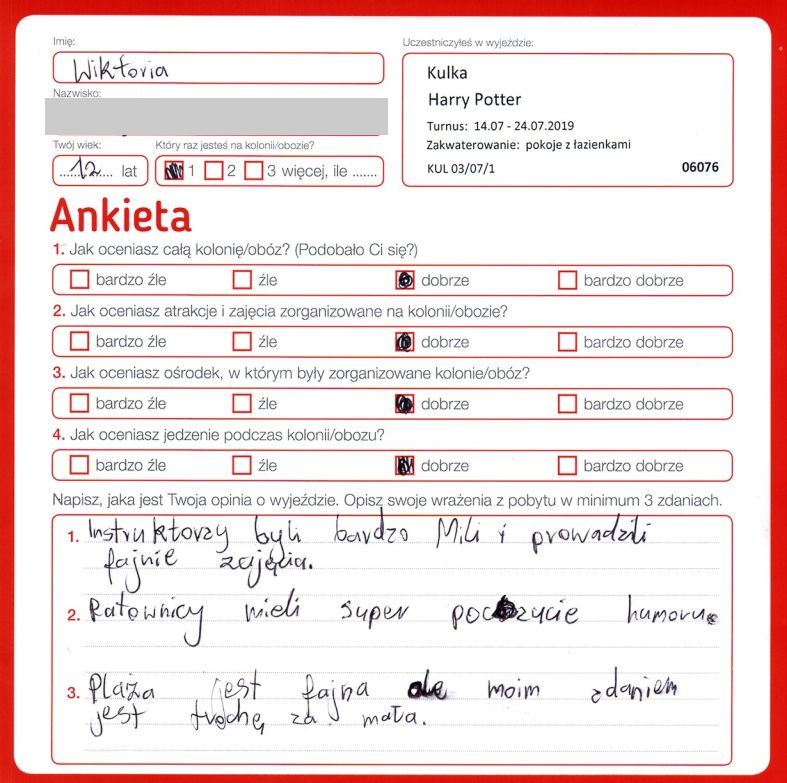 Imię:
Uczestniczyłeś w wyjeździe:
Wiktoria
Kulka
Harry Potter
Nazwisko:
Turnus: 14.07 - 24.07.2019
Zakwaterowanie: pokoje z łazienkami
KUL 03/07/1 06076
Twój wiek: Który raz jesteś na kolonii/obozie?
....12.... lat 1 2 3 więcej, ile .......
Ankieta
1. Jak oceniasz całą kolonię/obóz? (Podobało Ci się?)
bardzo źle źle dobrze bardzo dobrze
2. Jak oceniasz atrakcje i zajęcia zorganizowane na kolonii/obozie?
bardzo źle źle dobrze bardzo dobrze
3. Jak oceniasz ośrodek, w którym były zorganizowane kolonie/obóz?
bardzo źle źle dobrze bardzo dobrze
4. Jak oceniasz jedzenie podczas kolonii/obozu?
bardzo źle źle dobrze bardzo dobrze
Napisz, jaka jest Twoja opinia o wyjeździe. Opisz swoje wrażenia z pobytu w minimum 3 zdaniach.
1. Instruktorzy byli bardzo Mili i prowadzili
fajnie zajęcia.
2. Ratownicy mieli super poczucie humoru.
3. Plaża jest fajna ale moim zdaniem
jest trochę za mała.